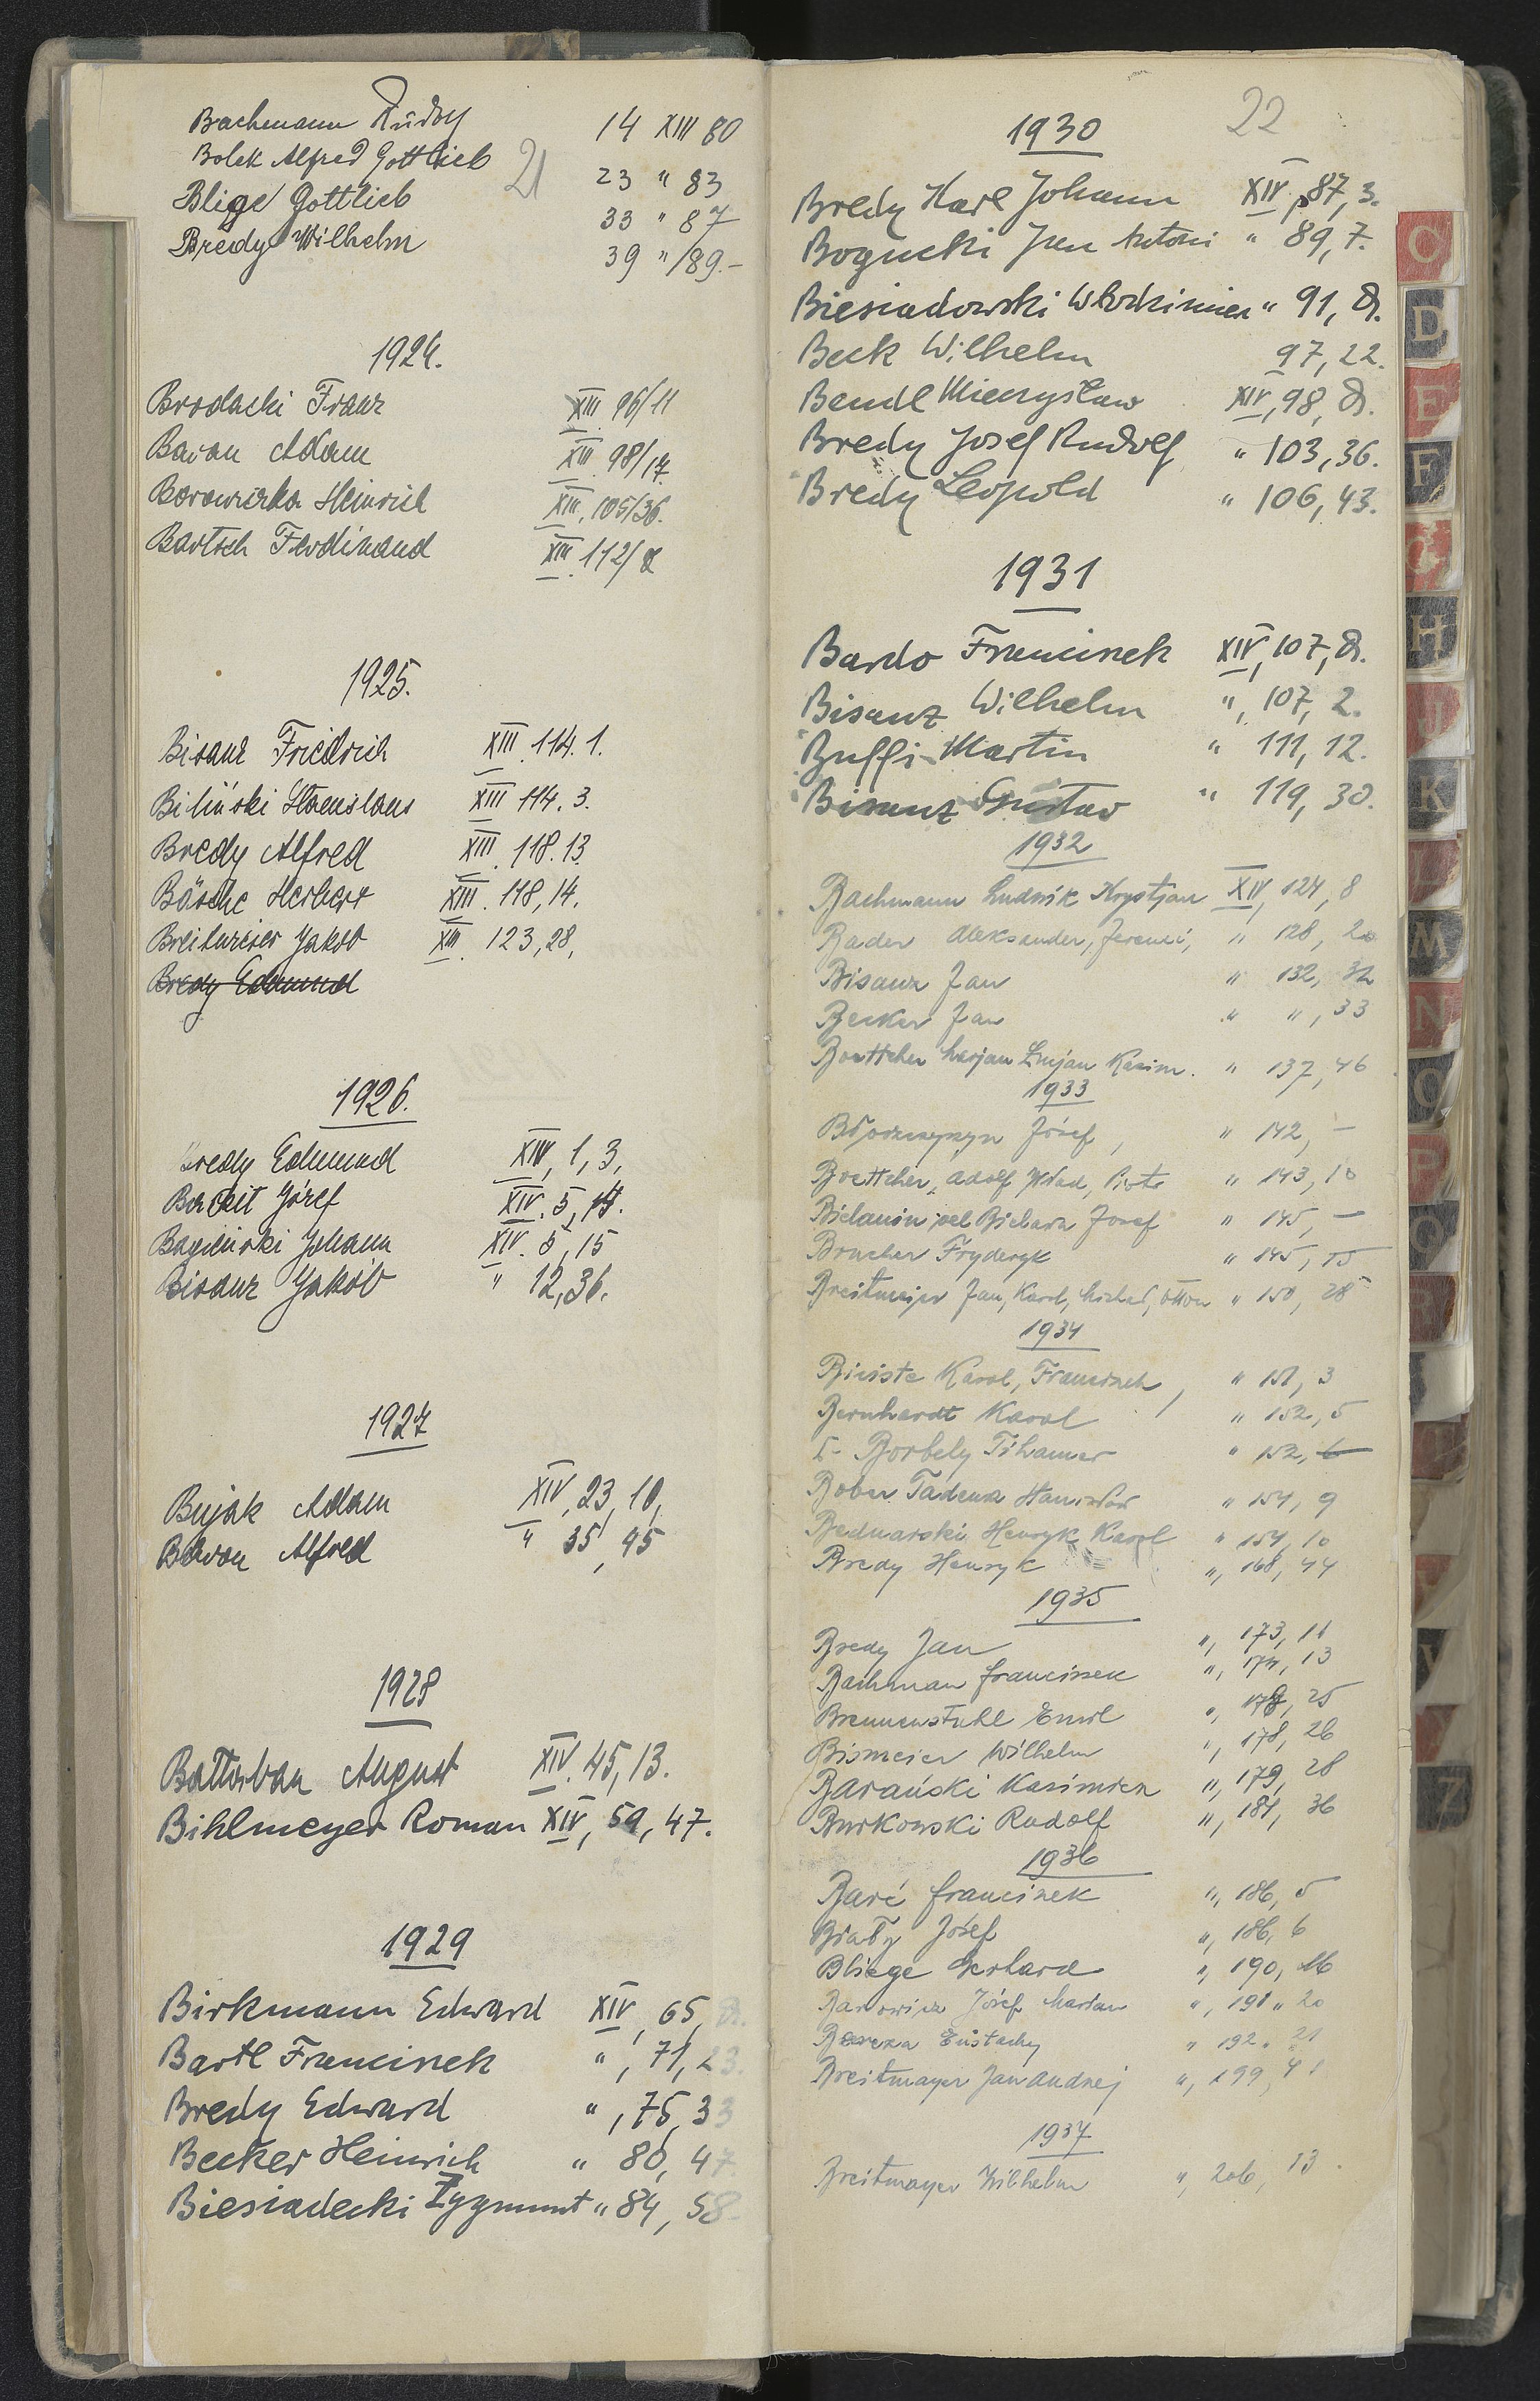 Bachmann Rudolf 14 XIII 80
Bolek Alfred Gottlieb 23 " 83
21
Blige Gottlieb 33 " 87
Bredy Wilhelm 39 " /89.-
1924.
Brodacki Franz XIII 96/11
Baran Adam XIII 98/17
Borowiczka Heinrich XIII. 105/36.
Bartsch Ferdinand XIII. 112/
1925.
Bisanz Friedrich XIII. 114. 1.
Biliński Stanislaus XIII 114. 3.
Bredy Alfred XIII. 118. 13.
Bösche Herbert XIII. 118, 14.
Breitmeier Jakob XIII. 123, 28,
Bredy Edmund
1926.
Bredy Edmund XIV, 1, 3,
Józef XIV. 5, 14.
Bagieński Johann XIV. 5, 15
Bisanz Jakób " 12, 36.
1927
Bujak Adam XIV, 23, 10,
Baron Alfred " 35, 95
1928
Battorban August XIV. 45, 13.
Bihlmeyer Roman XIV, 59, 47.
1929
Birkmann Edward XIV, 65,
Bartl Franciszek ", 71, 23.
Bredy Edward ", 75, 33
Becker Heinrich " 80, 47.
Biesiadecki Zygmunt " 84, 58.
22
1930
Bredy Karl Johann XIV, p87, 3.
Bogucki Jan Antoni " 89, 7.
Biesiadowski Włodzimierz " 91,
Beck Wilhelm 97, 22.
Bendl Mieczysław XIV, 98,
Bredy Josef Rudolf " 103, 36.
Bredy Leopold " 106, 43.
1931
Bardo Franciszek XIV, 107,
Bisanz Wilhelm ", 107, 2.
Buffi Martin " 111, 12.
Bisanz Gustav " 119, 30.
1932
Bachmann Ludwik Krystjan XIV, 124, 8
Bader Aleksander, " 128, 20
Bisanz Jan " 132, 32
Becker Jan " ", 33
Boettcher Marjan Lucjan Kazim. " 137, 46
1933
Józef, " 142, —
Boettcher, Adolf Wład, Piotr " 143, 10
Bielanin vel Bielarz Josef " 145, —
Brucher Fryderyk " 145, 15
Breitmajer Jan, Karol, Michał, Otton " 150, 28
1934
Karol, Franciszek, " 151, 3
Bernhardt Karol " 152, 5
Borbely Tihamer " 152, 6
Bober Tadeusz Stanisław " 154, 9
Bednarski Henryk Karol " 154, 10
Bredy Henryk ", 168, 44
1935
Bredy Jan ", 173, 11
Bachman Franciszek ", 174, 13
Brennenstuhl Emil ", 178, 25
Bismeier Wilhelm ", 178, 26
Barański Kazimierz ", 179, 28
Burkowski Rudolf ", 181, 36
1936
Barć Franciszek ", 186, 5
Biały Józef ", 186, 6
Bliege Gerhard ", 190, 16
Józef Marian ", 191 " 20
Eustachy " 192 " 21
Breitmayer Jan Andrzej ", 199, 41
1937
Breitmayer Wilhelm ", 206, 13.
C
D
E
F
G
H
J
K
L
M
N
O
P
Q
R
V
Z